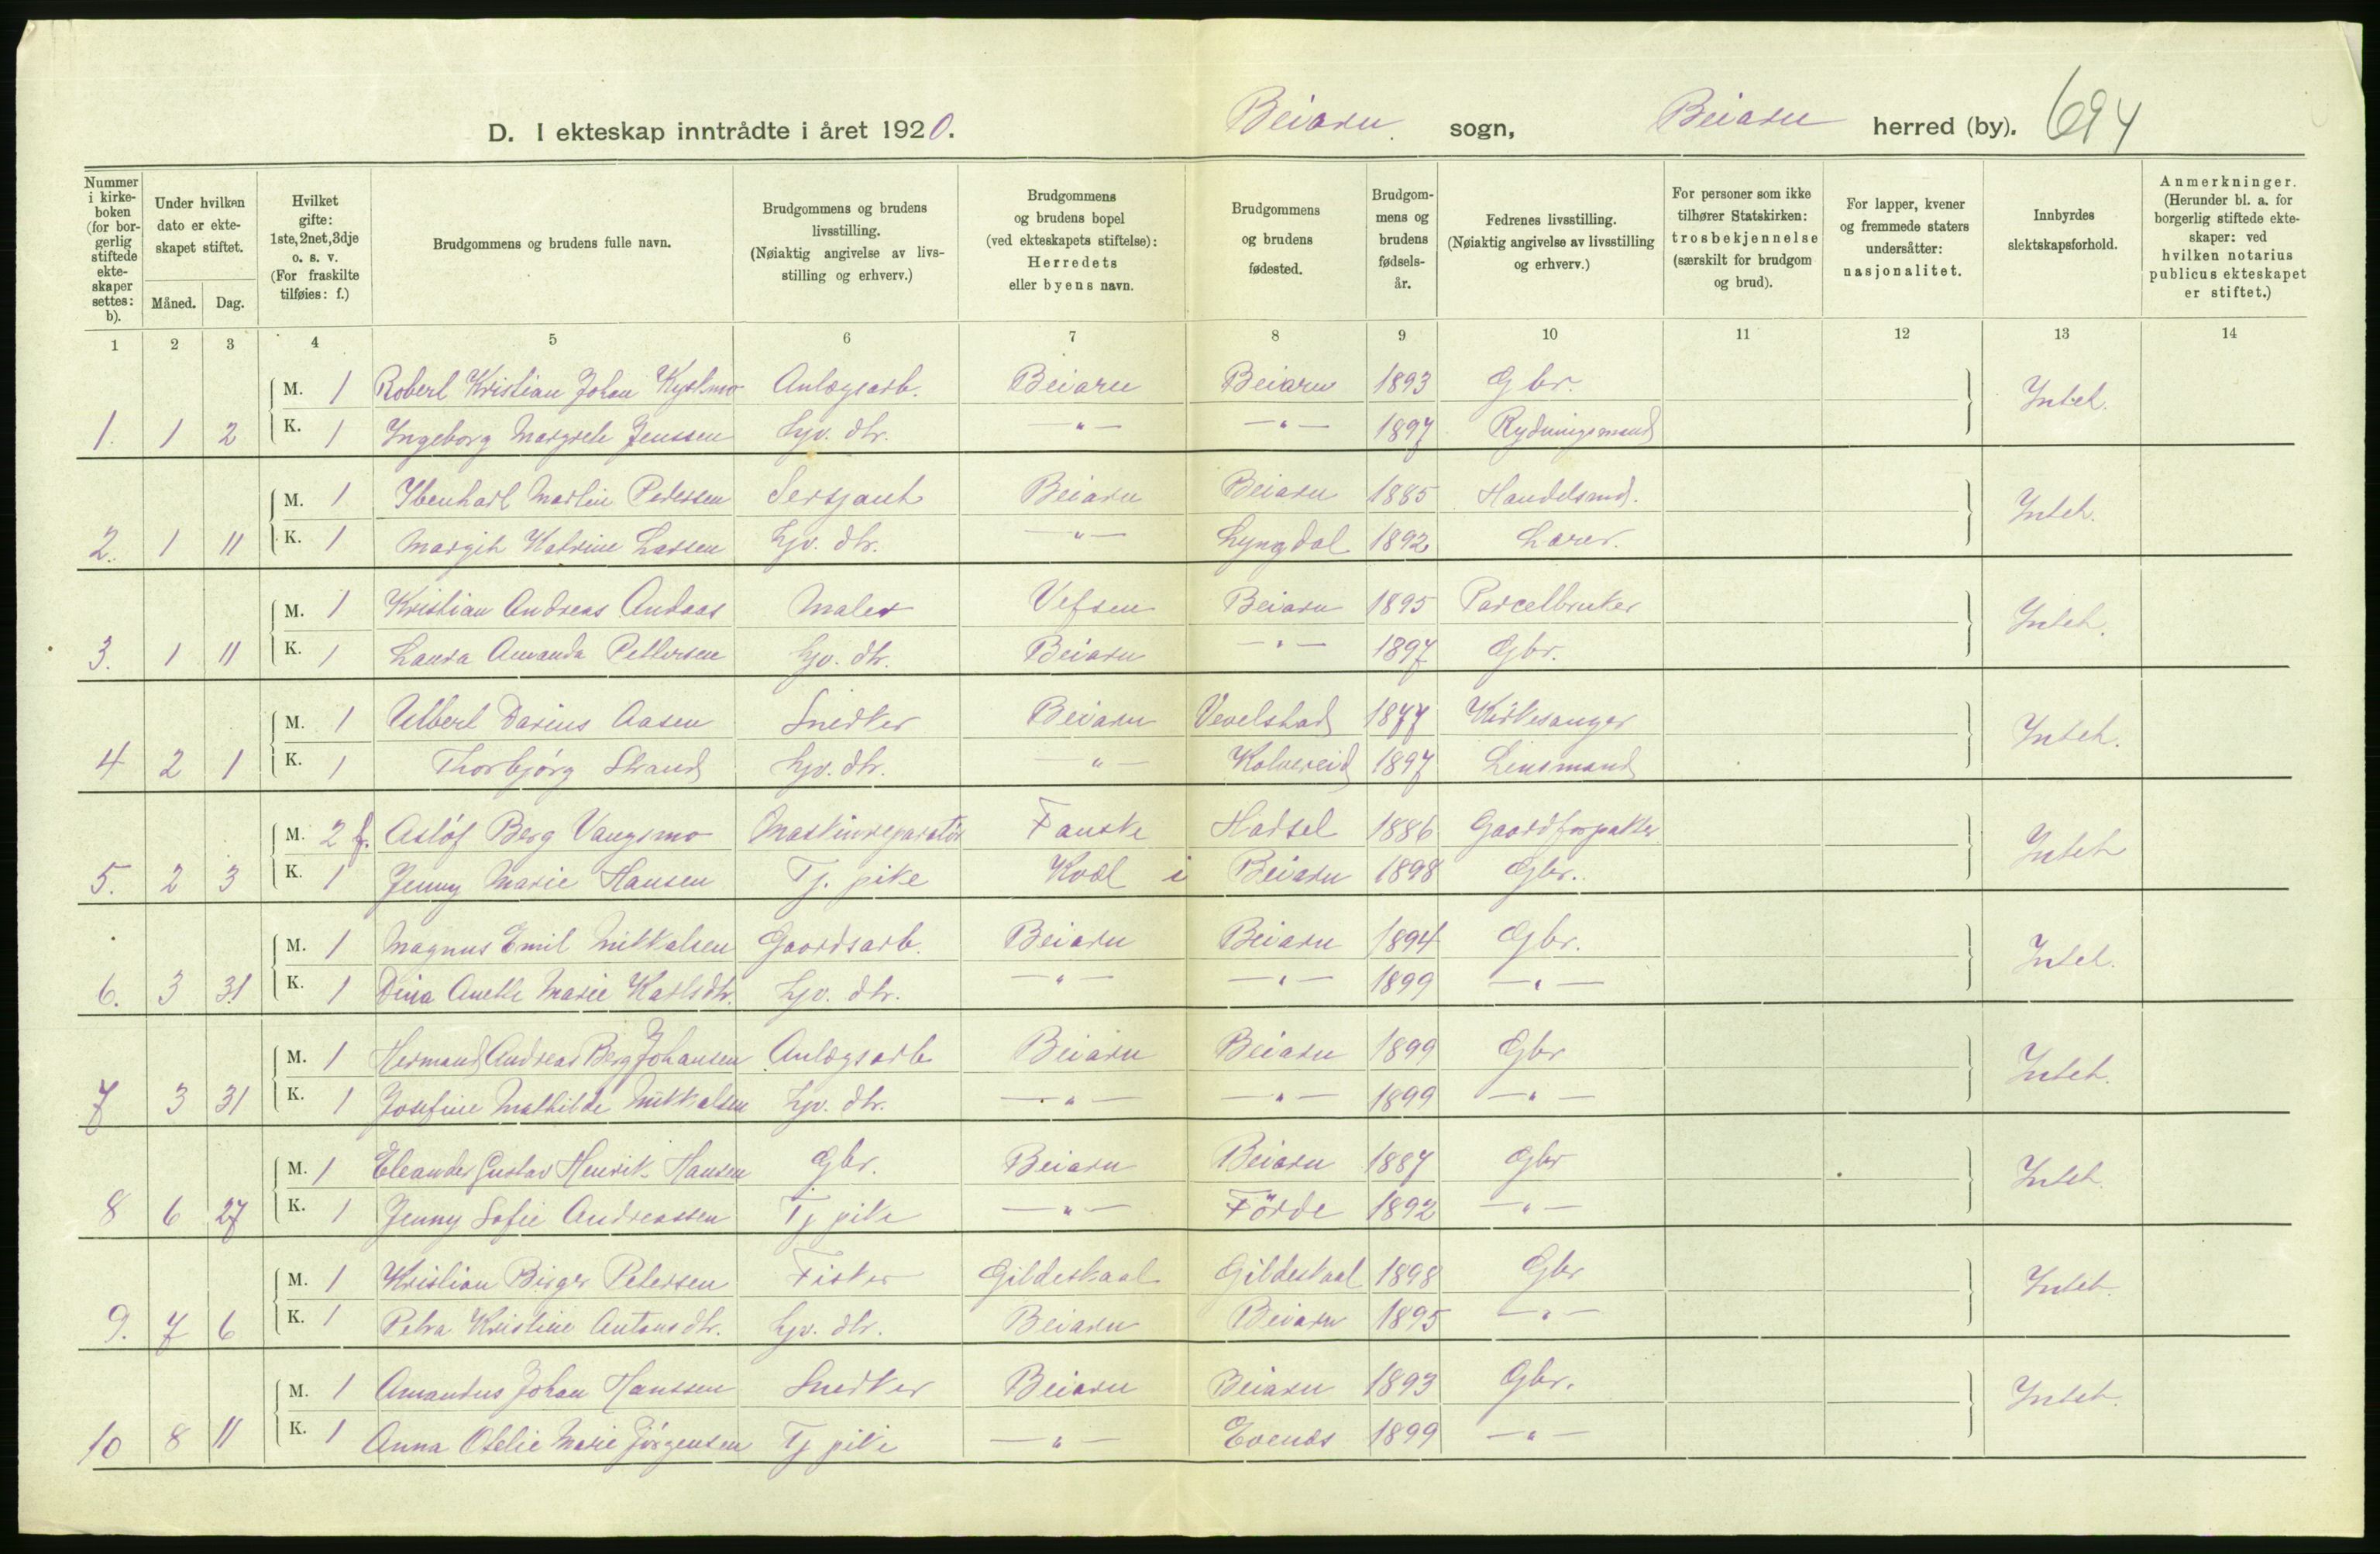 D. I ekteskap inntrådte i året 1920. Beiarn sogn, Beiarn herred (by). 694
Nummer i kirkeboken (for borgerlig stiftede ekteskaper settes: b). Under hvilken dato er ekteskapet stiftet. Måned. Dag. Hvilket gifte: 1ste, 2net, 3dje o. s. v. (For fraskilte tilføies: f.) Brudgommens og brudens fulle navn. Brudgommens og brudens livsstilling. (Nøiaktig angivelse av livsstilling og erhverv.) Brudgommens og brudens bopel (ved ekteskapets stiftelse): Herredets eller byens navn. Brudgommens og brudens fødested. Brudgommens og brudens fødselsår. Fedrenes livsstilling. (Nøiaktig angivelse av livsstilling og erhverv.) For personer som ikke tilhører Statskirken: trosbekjennelse (særskilt for brudgom og brud). For lapper, kvener og fremmede staters undersåtter: nasjonalitet. Innbyrdes slektskapsforhold. Anmerkninger. (Herunder bl. a. for borgerlig stiftede ekteskaper: ved hvilken notarius publicus ekteskapet er stiftet.)
1 2 3 4 5 6 7 8 9 10 11 12 13 14
M. 1 Robert Kristian Johan Anlægsarb. Beiarn Beiarn 1893 Gbr. Intet.
1. 1 2 K. 1 Ingeborg Margrete Jenssen Hjv. dtr. —„— —„— 1897 Rydningsmand
M. 1 Ibenhart Martin Pedersen Sersjant Beiarn Beiarn 1885 Handelsmd. Intet.
2. 1 11 K. 1 Margit Katrine Larsen Hjv. dtr. —„— Lyngdal 1892 Lærer.
M. 1 Kristian Andreas Andaas Maler Vefsen Beiarn 1895 Parcelbruker Intet.
3. 1 11 K. 1 Laura Amanda Pettersen Hjv. dtr. Beiarn —„— 1897 Gbr.
M. 1 Darius Aasen Snedker Beiarn Vevelstad 1877 Kirkesanger Intet.
4 2 1 K. 1 Thorbjørg Strand Hjv. dtr. —„— Kolvereid 1897 Lensmand
M. 2 f. Asløf Berg Vangsmo Maskinreparatør Fauske Hadsel 1886 Gaardforpakter Intet
5. 2 3 K. 1 Jenny Marie Hansen Tj. pike i Beiarn 1898 Gbr.
M. 1 Magnus Emil Mikkalsen Gaardsarb. Beiarn Beiarn 1894 Gbr. Intet.
6. 3 31 K. 1 Dina Anette Marie Karlsdtr. Hjv. dtr. —„— —„— 1899 —„—
M. 1 Hermand Andreas Berg Johansen Anlægsarb Beiarn Beiarn 1899 Gbr Intet.
7 3 31 K. 1 Josefine Mathilde Mikkalsen Hjv. dtr. —„— —„— 1899 —„—
M. 1 Eleander Gustav Henrik Hansen Gbr. Beiarn Beiarn 1887 Gbr Intet.
8 6 27 K. 1 Jenny Sofie Andreassen Tj pike —„— Förde 1892 —„—
M. 1 Kristian Birger Petersen Fisker Gildeskaal Gildeskaal 1898 Gbr Intet.
9. 7 6 K. 1 Petra Kristine Antonsdtr. Hjv. dtr. Beiarn Beiarn 1895 —„—
M. 1 Amandus Johan Hanssen Snedker Beiarn Beiarn 1893 Gbr. Intet.
10 8 11 K. 1 Anna Otelie Marie Jörgensen Tj pike —„— Evenes 1899 —„—